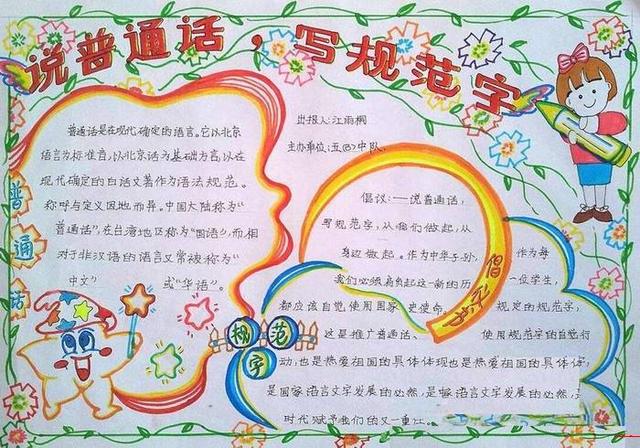 说普通话，写规范字
普通话是在现代确定的语言。它以北京
语言为标准音，以北京话为基础方言，以在
现代确定的白话文著作为语法规范。
称呼与定义因地而异。中国大陆称为“
普通话”，在台湾地区称为“国语”，而相
对于非汉语的语言又常被称为“
中文” 或“华语”。
普通话
规范字
出报人：江雨桐
主办单位：五(8)中队
倡议书
倡议:——说普通话，
写规范字，从我们做起，从
身边做起。作为中华子孙， 作为每
我们必须肩负起这一新的历 一位学生，
都应该自觉使用国家 史使命。 规定的规范字，
这是推广普通话、 使用规范字的自觉行
动，也是热爱祖国的具体体现也是热爱祖国的具体体
是国家语言文字发展的必然，是 语言文字发展的必然，
时代赋予我们的又一重任。